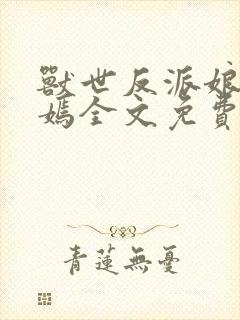 獸世反派娘
媽全文免費
青蓮無憂